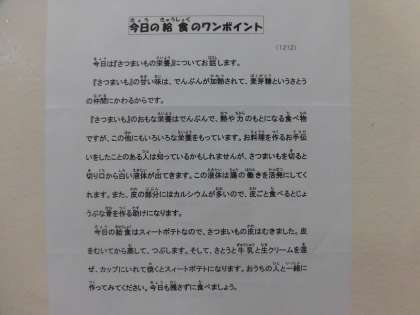 今日の給食のワンポイント
(1212)
今日は『さつまいもの栄養』についてお話します。
『さつまいも』の甘い味は、でんぷんが加熱されて、麦芽糖というさとう
の仲間にかわるからです。
『さつまいも』のおもな栄養はでんぷんで、熱や力のもとになる食べ物
ですが、この他にもいろいろな栄養をもっています。お料理を作るお手伝
いをしたことのある人は知っているかもしれませんが、さつまいもを切ると
切り口から白い液体が出てきます。この液体は腸の働きを活発にしてく
れます。また、皮の部分にはカルシウムが多いので、皮ごと食べるとじょ
うぶな骨を作る助けになります。
今日の給食はスィートポテトなので、さつまいもの皮はむきました。皮
をむいてから蒸して、つぶします。そして、さとうと牛乳と生クリームを混
ぜ、カップにいれて焼くとスィートポテトになります。おうちの人と一緒に
作ってみてください。今日も残さずに食べましょう。